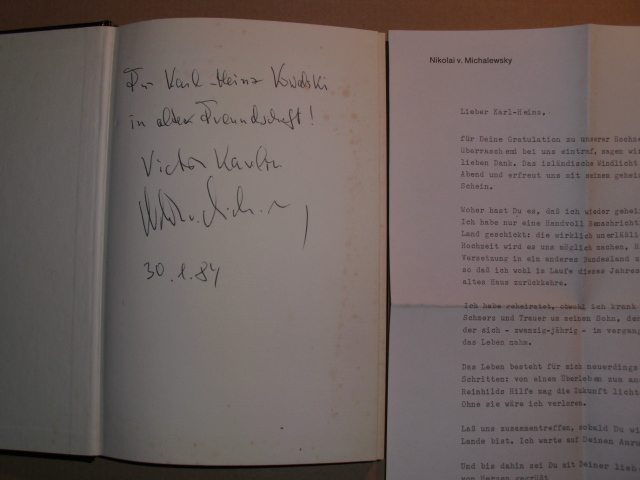 Für Karl-Heinz Kowalski
in alter Freundschaft!
Victor Karelin
30.1.84
Nikolai v. Michalewsky
Lieber Karl-Heinz,
für Deine Gratulation zu unserer Hochzei
überraschend bei uns eintraf, sagen wir
lieben Dank. Das isländische Windlicht
Abend und erfreut uns mit seinem geheim
Schein.
Woher hast Du es, daß ich wieder geheir
Ich habe nur eine Handvoll Benachricht
Land geschickt: die wirklich unerläßli
Hochzeit wird es uns möglich machen, R
Versetzung in ein anderes Bundesland z
so daß ich wohl im Laufe dieses Jahres
altes Haus zurückkehre.
Ich habe geheiratet, obwohl ich krank
Schmerz und Trauer um meinen Sohn, den
der sich - zwanzig-jährig - im vergang
das Leben nahm.
Das Leben besteht für mich neuerdings
Schritten: von einem Überleben zum an
Reinhilds Hilfe mag die Zukunft licht
Ohne sie wäre ich verloren.
Laß uns zusammentreffen, sobald Du wi
Lande bist. Ich warte auf Deinen Anru
Und bis dahin sei Du mit Deiner lieb.
von Herzen gegrüßt